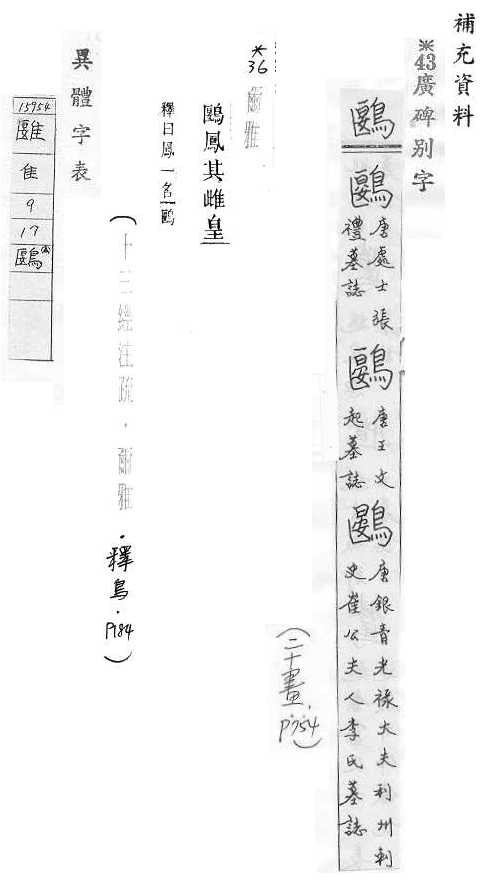 補充資料
※43廣碑別字
鶠
鶠
唐處士張
禮墓誌
鶠
唐王文
起墓誌
鶠
唐銀青光祿大夫利州刺
史崔公夫人李氏墓誌
(二十畫.P754)
※36爾雅
鶠鳳其雌皇
釋曰鳳一名鶠
(十三經注疏.爾雅.釋鳥.P184)
異體字表
15954
隹
9
17
鶠